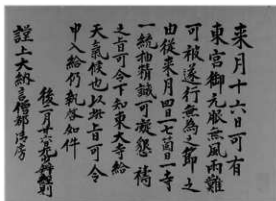 来月十六日可有
東宮御元服無風雨難
可被遂行無為之節之
由従来月四日一七箇日一寺
一統抽精誠可凝懇祷
之旨可令下知東大寺給
天氣候也以此旨可令
申入給仍執啓如件
後二月廿六日
謹上大納言僧都御房